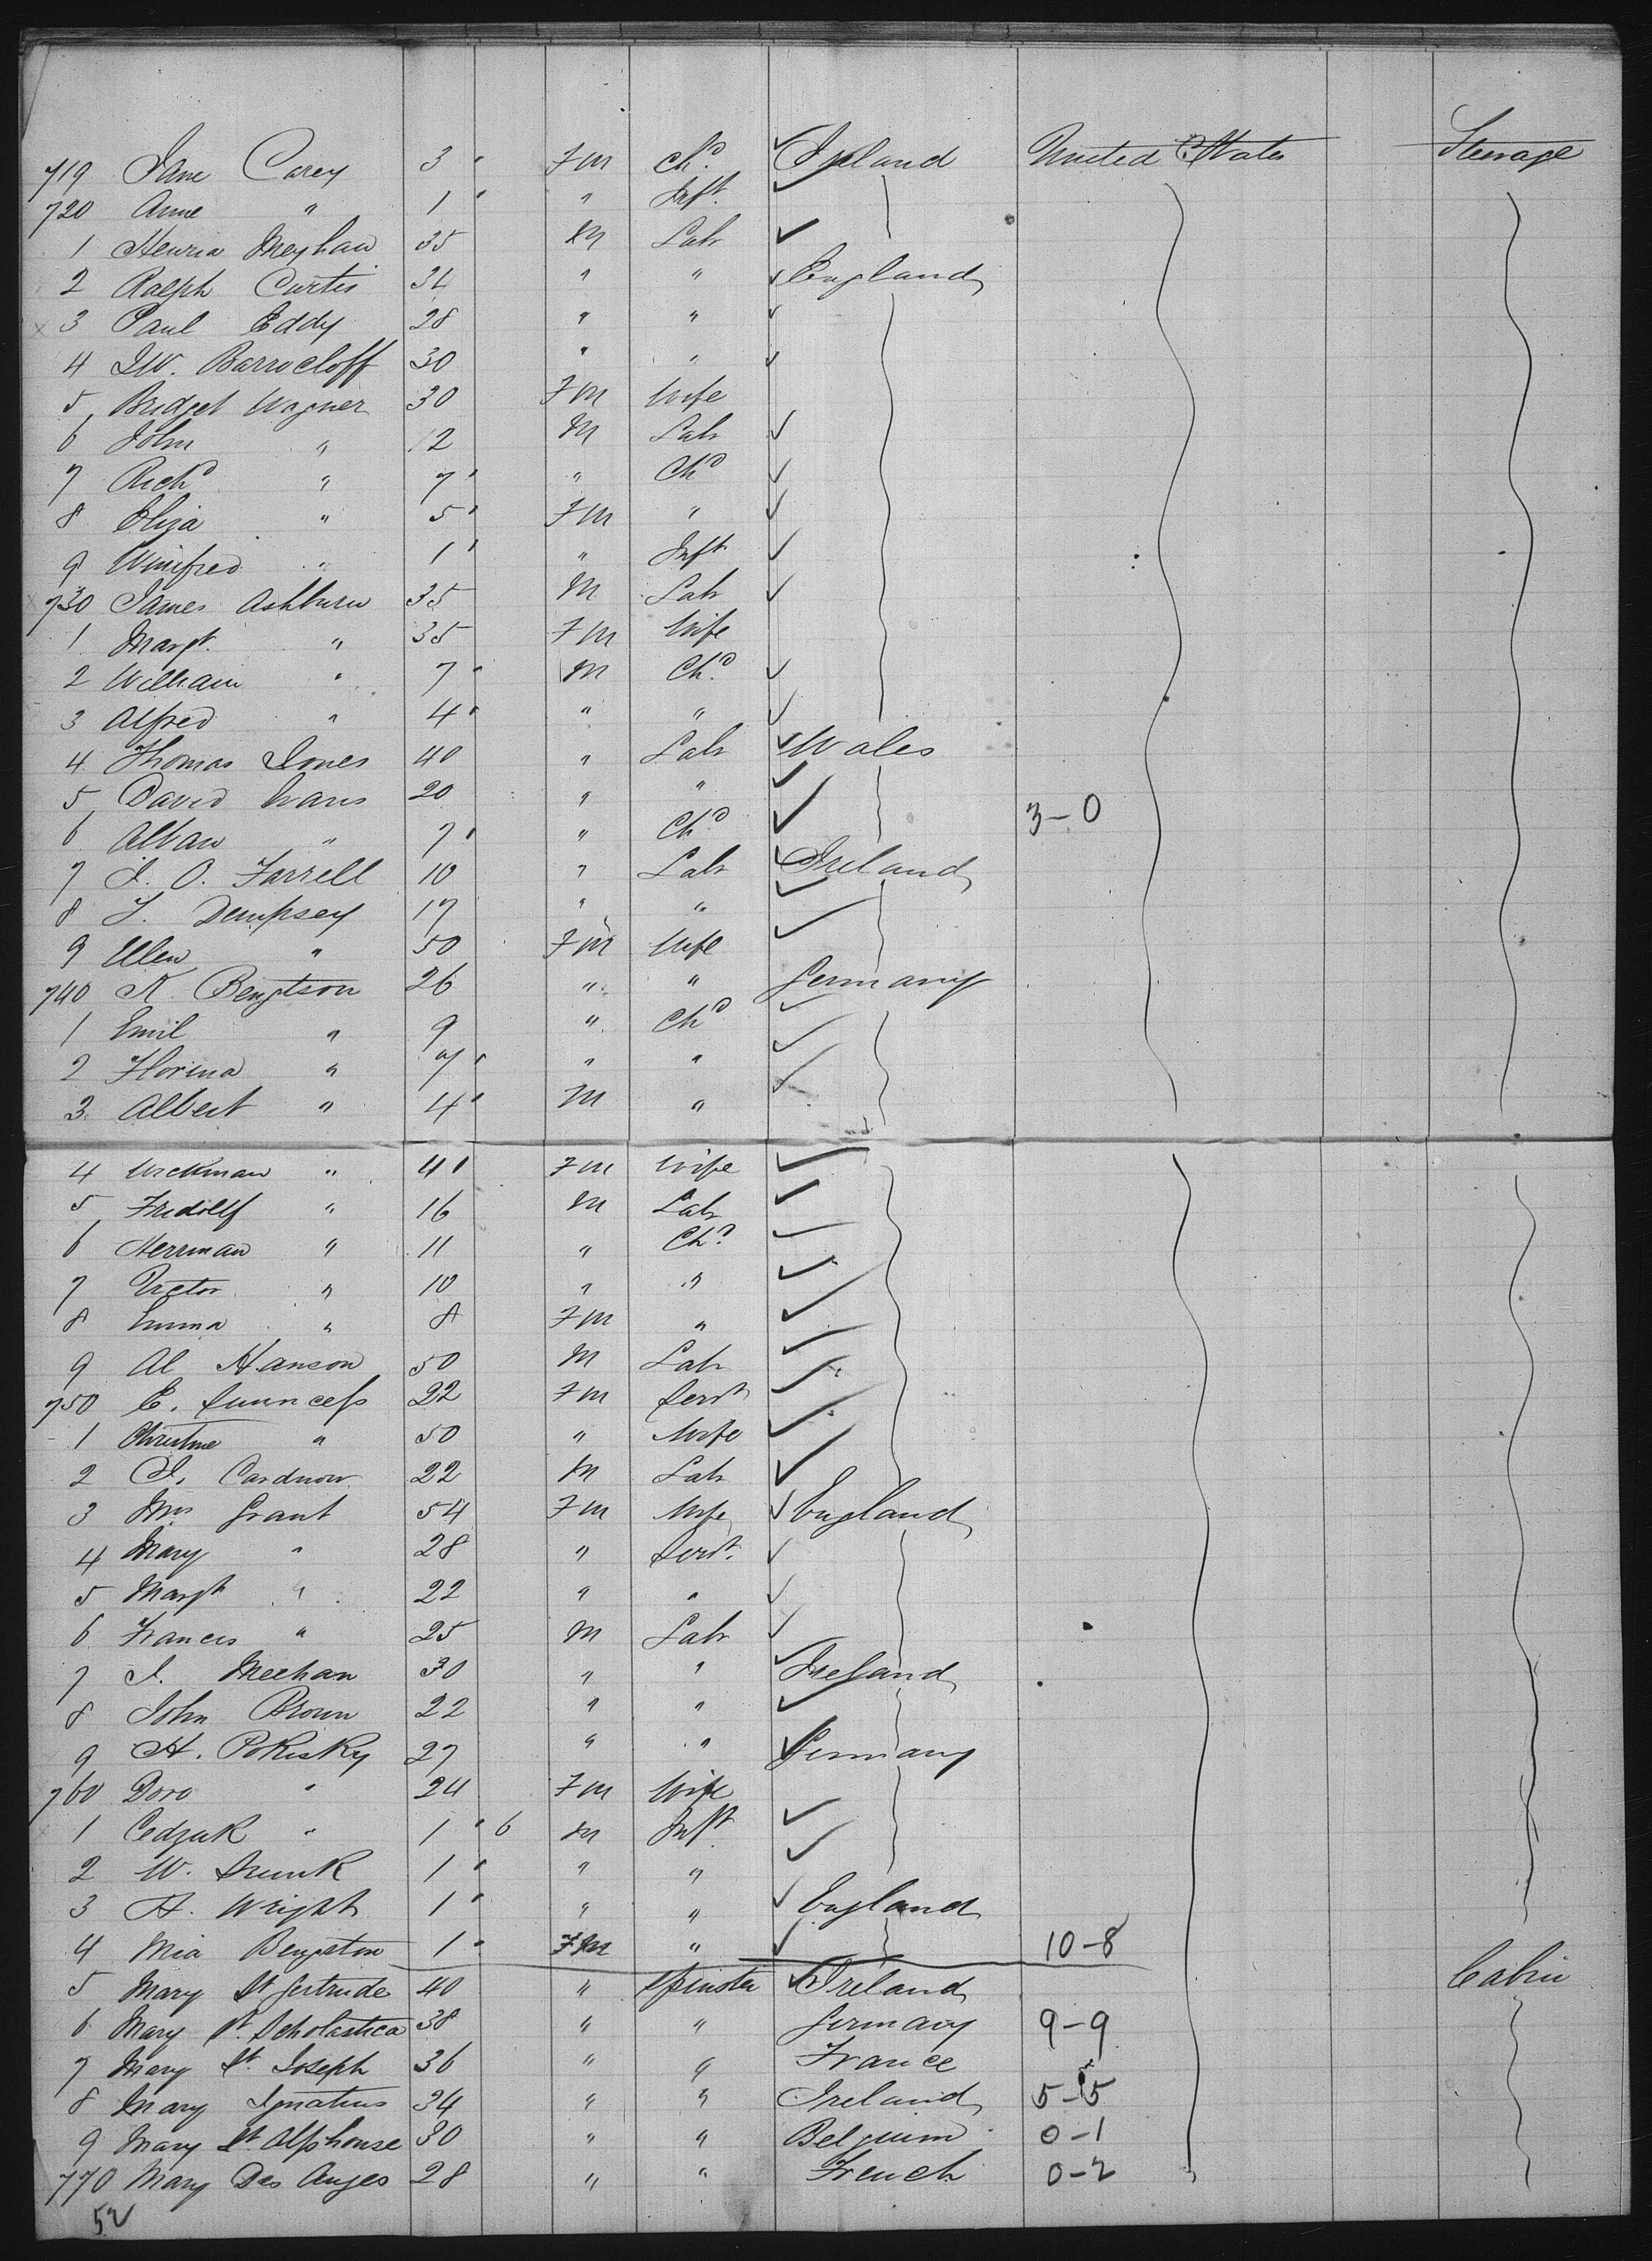 719 Jane Carey 3 " Fm Chd. Ireland United States Steerage
720 Anne " 1 " " Inft.
1 Henria Meghan 35 M Labr
2 Ralph Curtis 34 " " England
3 Paul Eddy 28 " "
4 J.W. Barrocloff 30 " "
5 Bridget Wagner 30 Fm Wife
6 John " 12 M Labr
7 Richd " 7 " " Chd
8 Eliza " 5 " Fm "
9 Winifred " 1 " " Inft
730 James Ashburn 35 M Labr
1 Margt. " 35 Fm Wife
2 William " 7 " M Chd.
3 Alfred " 4 " " "
4 Thomas Jones 40 " Labr Wales
5 David Evans 20 " "
6 Alban " 7 " " Chd 3-0
7 J. O. Farrell 10 " Labr Ireland
8 J. Dempsey 17 " "
9 Ellen " 50 Fm Wife
740 K. Bengtson 26 " " Germany
1 Emil " 9 " Chd
2 Florina " 7 " " "
3 Albert " 4 " M "
4 Wickman " 41 Fm Wife
5 Fridolf " 16 M Labr
6 Herrman " 11 " Chd
7 Victor " 10 " "
8 Emma " 8 Fm "
9 Al Hanson 50 M Labr
750 E. 22 Fm Servt
1 Christine " 50 " Wife
2 J. Cardnow 22 M Labr
3 Mrs Grant 54 Fm Wife England
4 Mary " 28 " Servt.
5 Margt " 22 " "
6 Francis " 25 M Labr
7 J. Meehan 30 " " Ireland
8 John Brown 22 " "
9 H. Pokisky 27 " " Germany
760 Doro " 24 Fm Wife
1 Cedzuk " 1 " 6 M Inft.
2 W. 1 " " "
3 A. Wright 1 " " " England
4 Mia Bengston 1 " Fm " 10-8
5 Mary St Gertrude 40 " Spinster Ireland Cabin
6 Mary St. Scholastica 38 " " Germany 9-9
7 Mary St. Joseph 36 " " France
8 Mary Ignatius 34 " " Ireland 5-5
9 Mary St Alphonse 30 " " Belgium 0-1
770 Mary Des Anges 28 " " French 0-2
52